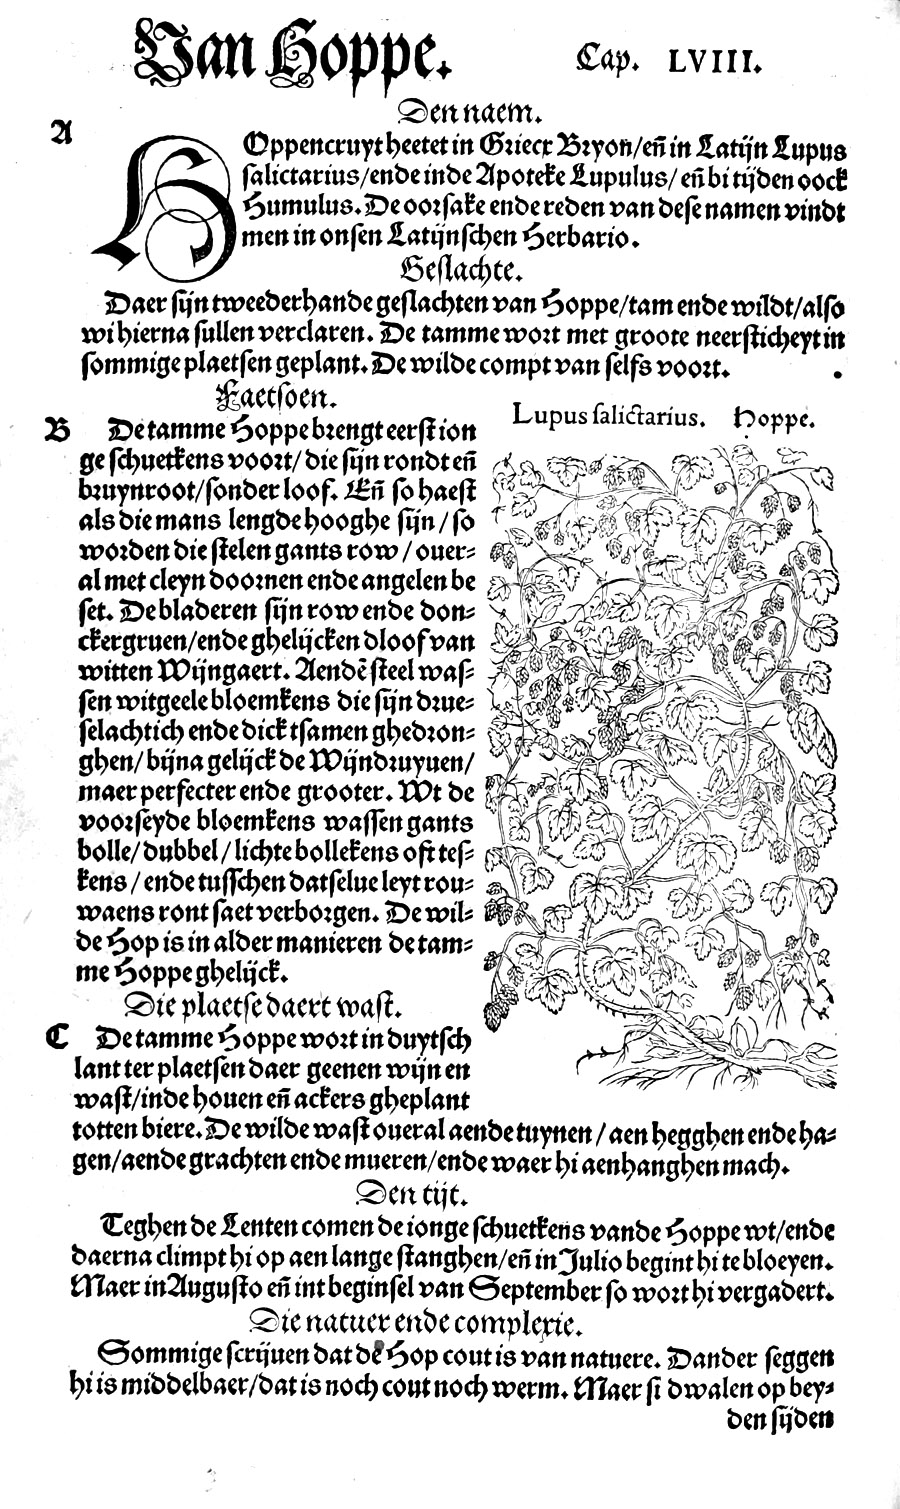 Van Hoppe. Cap. LVIII.
Den naem.
A
HOppencruyt heetet in Griecx Bryon/ en̄ in Latijn Lupus
salictarius/ ende inde Apoteke Lupulus/ en̄ bi tijden oock
Humulus. De oorsake ende reden van dese namen vindt
men in onsen Latijnschen Herbario.
Geslachte.
Daer sijn tweederhande geslachten van Hoppe/ tam ende wildt/ also
wi hierna sullen verclaren. De tamme wort met groote neersticheyt in
sommige plaetsen geplant. De wilde compt van selfs voort.
Faetsoen.
B De tamme Hoppe brengt eerst ion
ge schuetkens voort/ die sijn rondt en̄
bruynroot/ sonder loof. En̄ so haest
als die mans lengde hooghe sijn/ so
worden die stelen gants row/ ouer⸗
al met cleyn doornen ende angelen be
set. De bladeren sijn row ende don⸗
ckergruen/ ende ghelijcken dloof van
witten Wijngaert. Aendē steel was⸗
sen witgeele bloemkens die sijn drue⸗
selachtich ende dick tsamen ghedron⸗
ghen/ bijna gelijck de Wijndruyuen/
maer perfecter ende grooter. Wt de
voorseyde bloemkens wassen gants
bolle/ dubbel/ lichte bollekens oft tes⸗
kens/ ende tusschen datselue leyt rou⸗
waens ront saet verborgen. De wil⸗
de Hop is in alder manieren de tam⸗
me Hoppe ghelijck.
Lupus salictarius. Hoppe.
Die plaetse daert wast.
C De tamme Hoppe wort in duytsch
lant ter plaetsen daer geenen wijn en
wast/ inde houen en̄ ackers gheplant
totten biere. De wilde wast oueral aende tuynen/ aen hegghen ende ha⸗
gen/ aende grachten ende mueren/ ende waer hi aenhanghen mach.
Den tijt.
Teghen de Lenten comen de ionge schuetkens vande Hoppe wt/ ende
daerna climpt hi op aen lange stanghen/ en̄ in Julio begint hi te bloeyen.
Maer in Augusto en̄ int beginsel van September so wort hi vergadert.
Die natuer ende complexie.
Sommige scrijuen dat de Hop cout is van natuere. Dander seggen
hi is middelbaer/ dat is noch cout noch werm. Maer si dwalen op bey⸗
den sijden